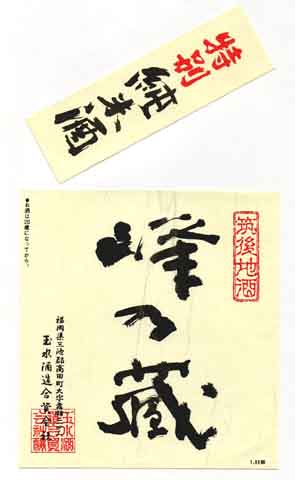 特別
純米酒
筑後地酒
峰乃蔵
●お酒は20歳になってから。
福岡県三池郡高田町大字
玉水酒造合資会社
1.8ℓ詰